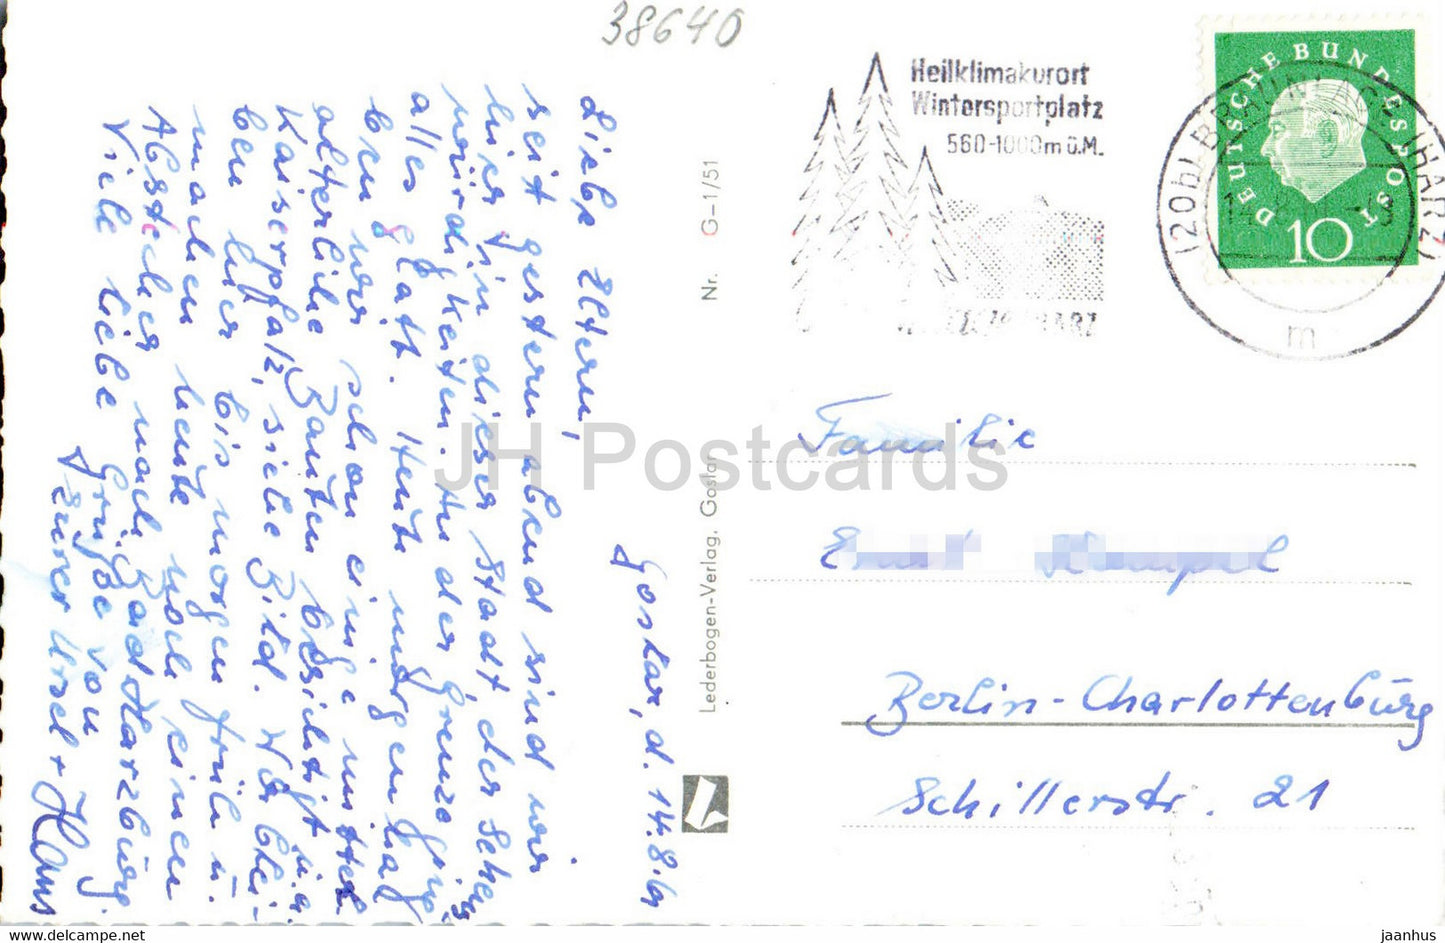 38640
Goslar, d. 14.8.61
Liebe Eltern,
seit gestern abend sind wir
hier in dieser Stadt, der Sehens
würdigkeiten. An der Grenze ging
alles glatt. Heute
ben wir schon einige mittel
alterliche Bauten besichtigt u.a.
Kaiserpfalz, siehe Bild. Wir blei-
ben hier bis morgen früh u.
machen heute noch einen
Abstecher nach Bad Harzburg.
Viele liebe Grüße von
Eurer Ursel + Hans
Nr. G-1/51
Lederbogen-Verlag, Goslar
Heilklimakurort
Wintersportplatz
560-1000m ü.M.
HARZ
DEUTSCHE BUNDESPOST
10
(20b) BRAUNLAGE (HARZ)
m
Familie
Berlin-Charlottenburg
Schillerstr. 21
JH Postcards
hipstamp.com
jaanhus